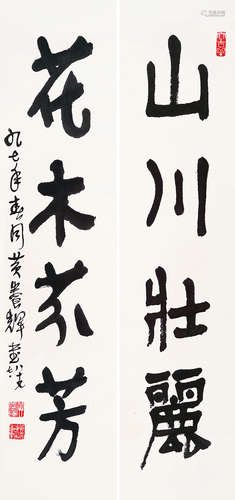 山川壯麗
花木芬芳
九七年春月黃養輝書